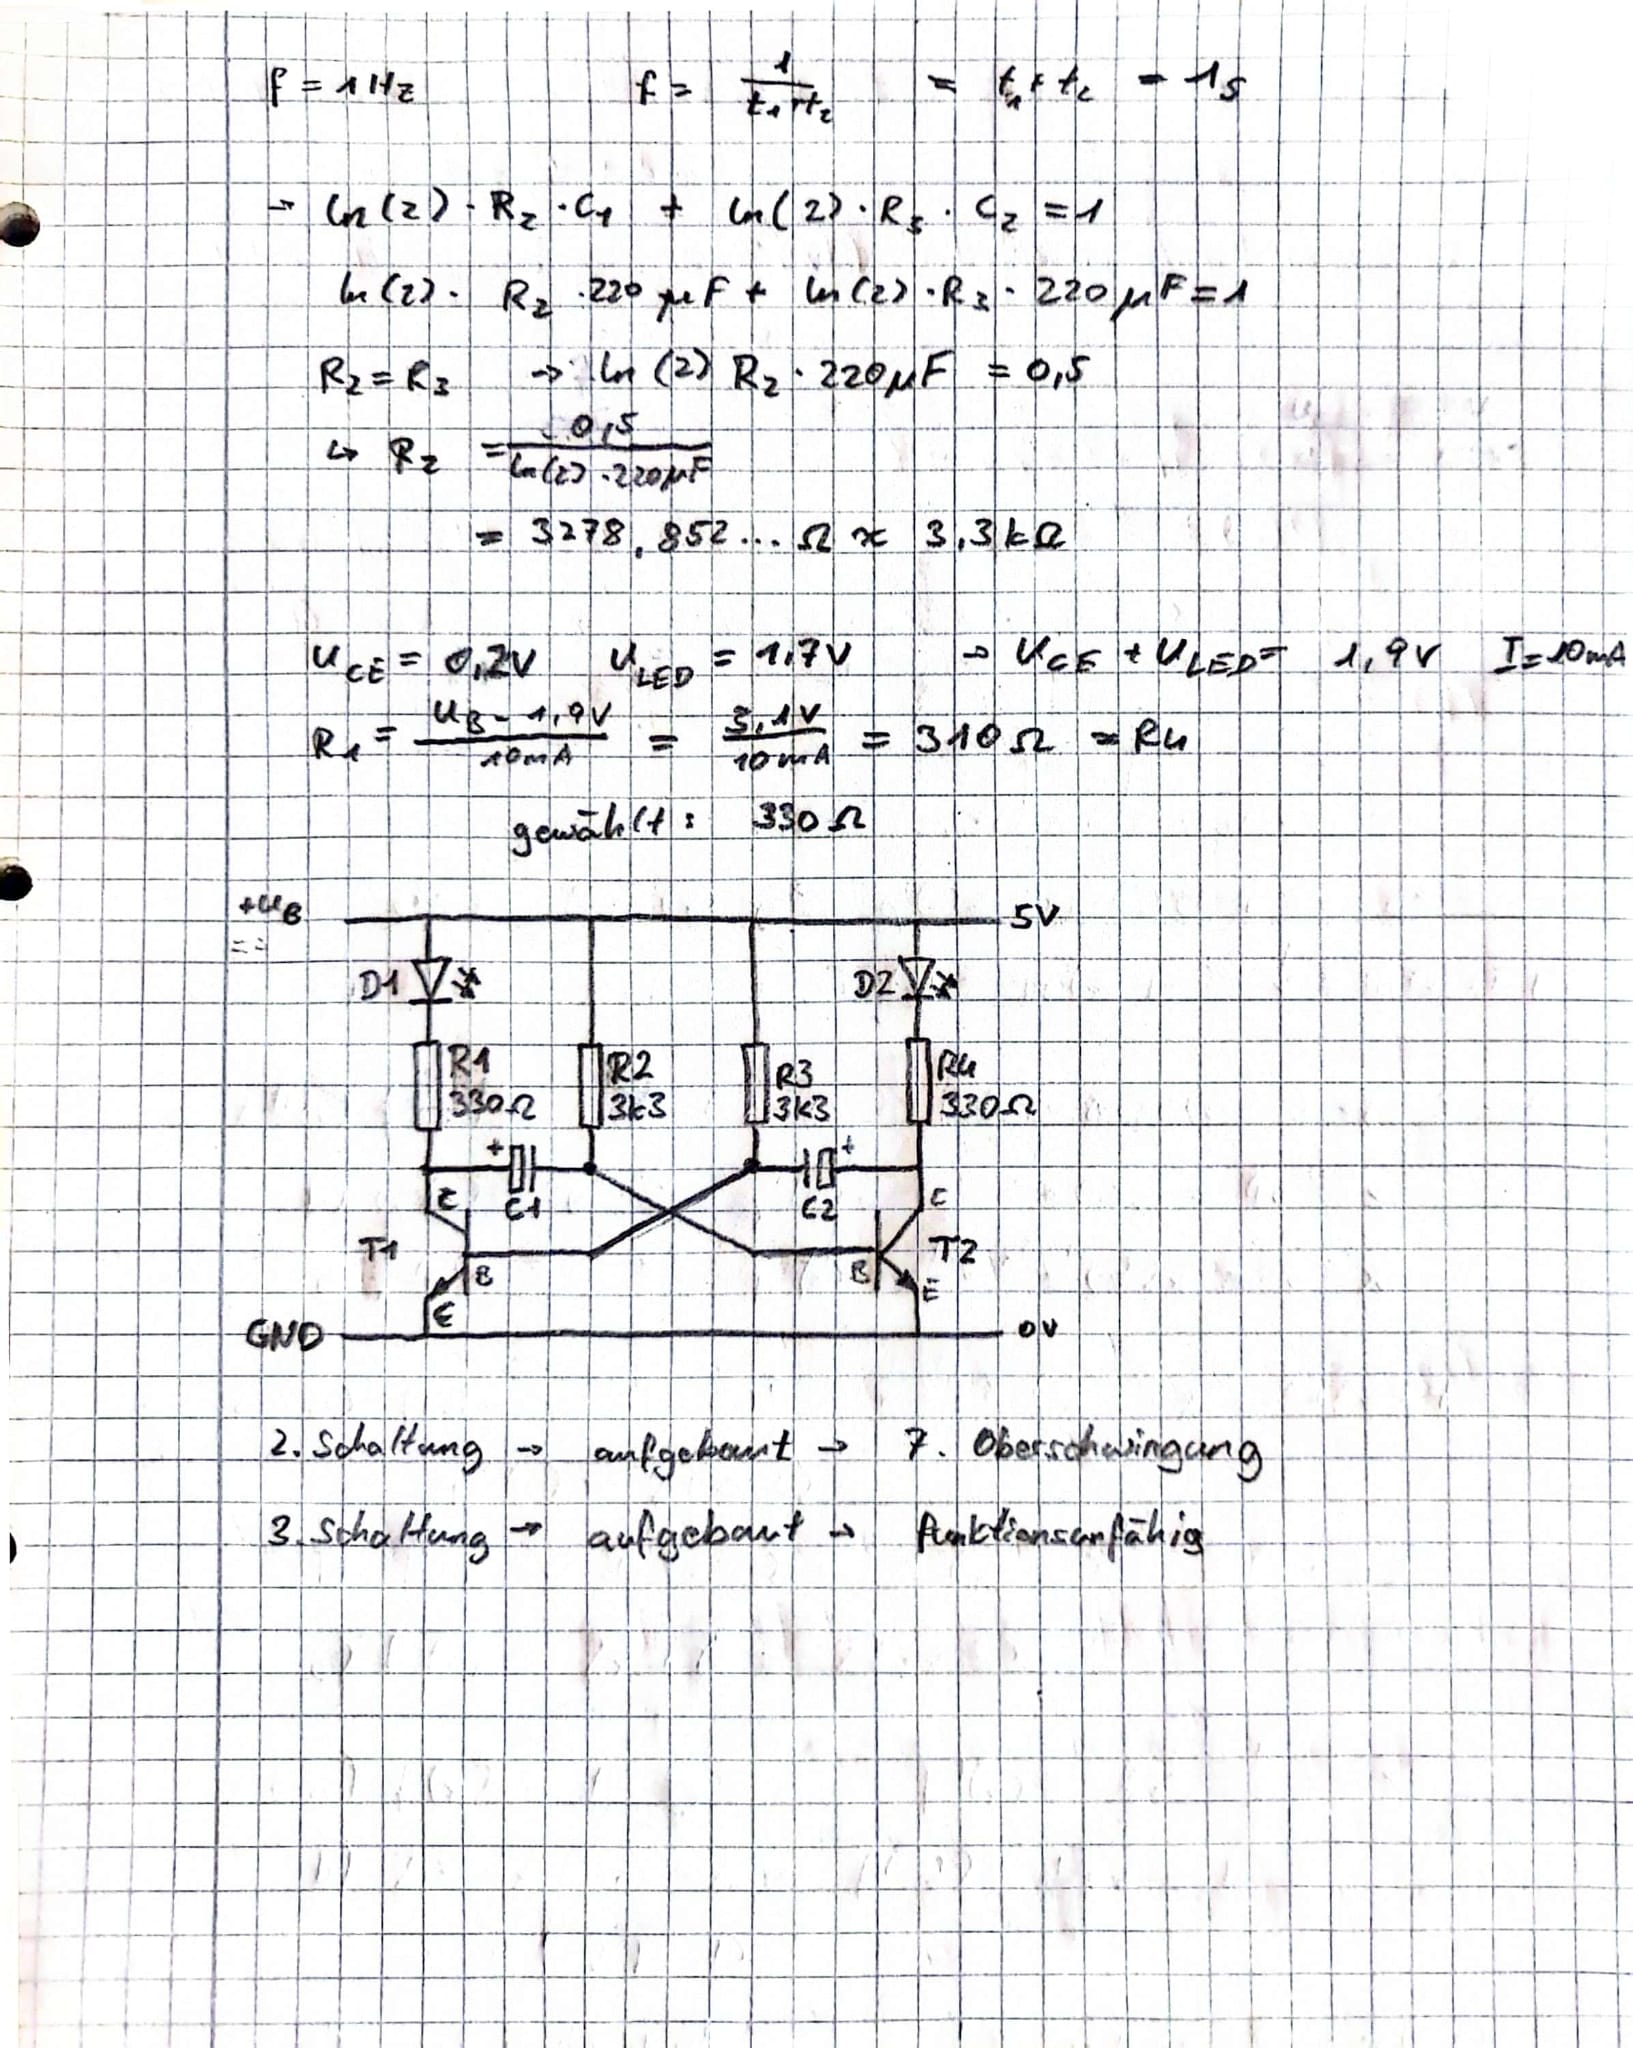 f = 1 Hz f = 1/(t1+t2) = t1 + t2 = 1s
→ ln(2) · R2 · C1 + ln(2) · R3 · C2 = 1
ln(2) · R2 · 220 µF + ln(2) · R3 · 220 µF = 1
R2 = R3 → ln(2) R2 · 220µF = 0,5
↳ R2 = 0,5/(ln(2) · 220µF)
= 3278,852... Ω ≈ 3,3kΩ
UCE = 0,2V ULED = 1,7V → UCE + ULED = 1,9V I=10mA
R1 = (UB - 1,9V)/10mA = 3,1V/10mA = 310Ω = R4
gewählt: 330Ω
+UB 5V
D1 D2
R1 R2 R3 R4
330Ω 3k3 3k3 330Ω
+ +
C1 C2
C C
T1 T2
B B
E E
GND 0V
2. Schaltung → aufgebaut → 7. Oberschwingung
3. Schaltung → aufgebaut → funktionsunfähig